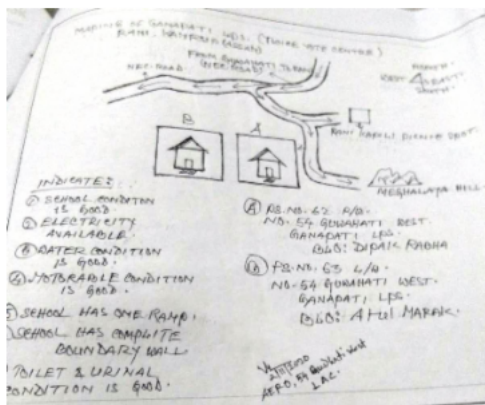 OF GANAPATI LPS.
RANI, KAMRUP (ASSAM)
FROM GUWAHATI TO RANI
(NEC ROAD)
NEC ROAD
NORTH
WEST EAST
SOUTH
B
A
RANI KAPILI PICNIC SPOT.
MEGHALAYA HILL
INDICATE:
① SCHOOL CONDITION
IS GOOD.
② ELECTRICITY
AVAILABLE.
③ WATER CONDITION
IS GOOD.
④ MOTORABLE CONDITION
IS GOOD.
SCHOOL HAS ONE RAMP.
SCHOOL HAS COMPLITE
BOUNDARY WALL
TOILET & URINAL
CONDITION IS GOOD.
Ⓐ PS. NO. 62
NO. 54 GUWAHATI WEST.
GANAPATI LPS.
BLO: DIPAK RABHA
Ⓑ PS. NO. 63
NO. 54 GUWAHATI WEST.
GANAPATI LPS.
BLO: ATUL MARAK.
AERO, 54 Guwahati West
LAC.